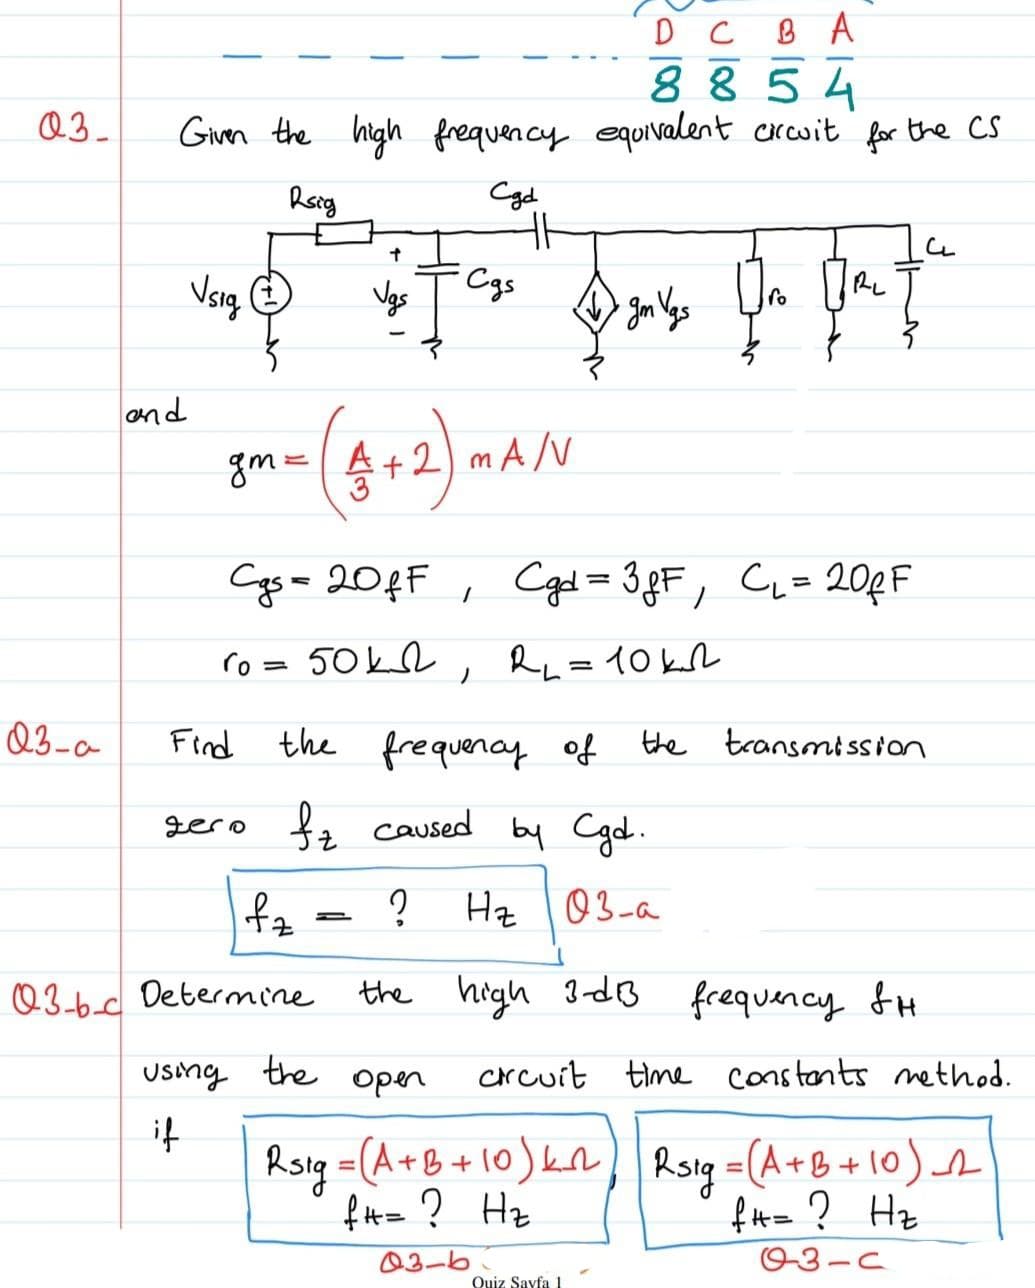 D C B A
8 8 5 4
Q3-
Given the high frequency equivalent circuit for the CS
Rsig
Cgd
CL
+
Vsig
Vgs
Cgs
gmVgs
ro
RL
-
and
gm = (A/3 + 2) mA/V
Cgs = 20fF , Cgd = 3fF, CL = 20fF
ro = 50kΩ , RL = 10kΩ
Q3-a
Find the frequency of the transmission
zero fz caused by Cgd.
fz = ? Hz
Q3-a
Q3-b-c
Determine the high 3-dB frequency fH
using the open circuit time constants method.
if
Rsig = (A+B+10) kΩ, Rsig = (A+B+10) Ω
fH = ? Hz fH = ? Hz
Q3-b Q-3-c
Quiz Sayfa 1